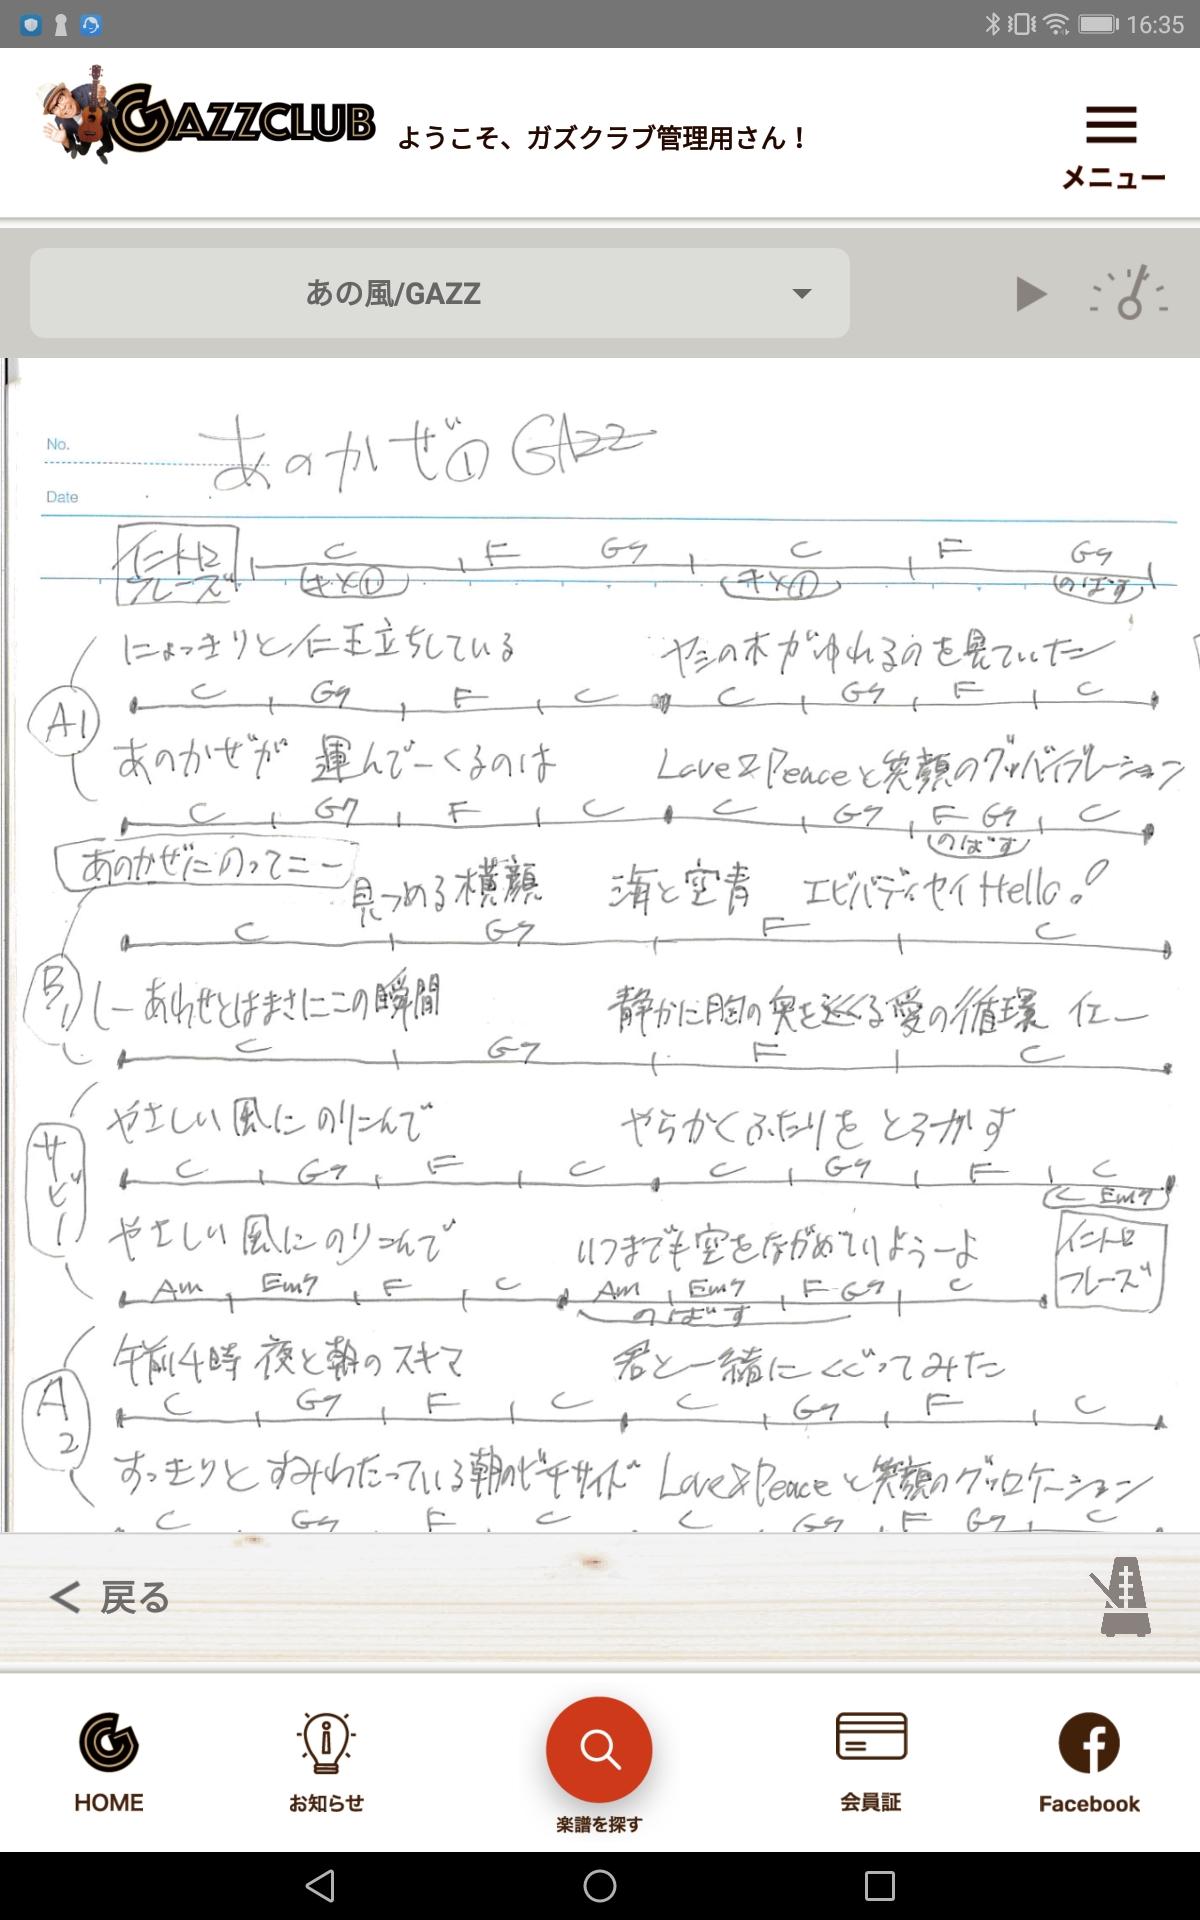 16:35
GAZZCLUB ようこそ、ガズクラブ管理用さん！
メニュー
あの風/GAZZ
No.
あのかぜ① GAZZ
Date
イントロフレーズ C F G7 C F G7
キメ① キメ① のばす
にょっきりと仁王立ちしている ヤシの木がゆれるのを見ていたー
A1
C G7 F C C G7 F C
あのかぜが 運んでーくるのは Love&Peaceと笑顔のグッバイブレーション
C G7 F C C G7 F G7 C
のばす
あのかぜにのってニー
見つめる横顔 海と空青 エビバディセイ Hello!
C G7 F C
B1
しーあわせとはまさにこの瞬間 静かに胸の奥を巡る愛の循環 イェー
C G7 F C
サビ1
やさしい風に のりこんで やらかくふたりを とろかす
C G7 F C C G7 F C
C Em7
やさしい風に のりこんで いつまでも空をながめていようーよ
イントロフレーズ
Am Em7 F C Am Em7 F G7 C
のばす
午前4時 夜と朝のスキマ 君と一緒にくぐってみた
A2
C G7 F C C G7 F C
すっきりと すみわたっている朝のビーチサイド Love&Peaceと笑顔のグッロケーション
C G7 F C C G7 F G7 C
戻る
HOME お知らせ 楽譜を探す 会員証 Facebook